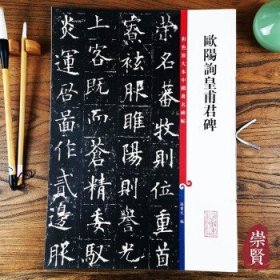 彩色放大本中國著名碑帖
歐陽詢皇甫君碑
孫寶文 編
榮名蕃牧則位重首
寮袨服睢陽則譽光
上客既而蒼精委馭
炎運啓圖作貳邊服
崇賢